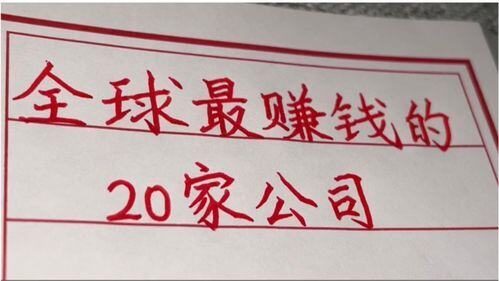 全球最赚钱的
20家公司